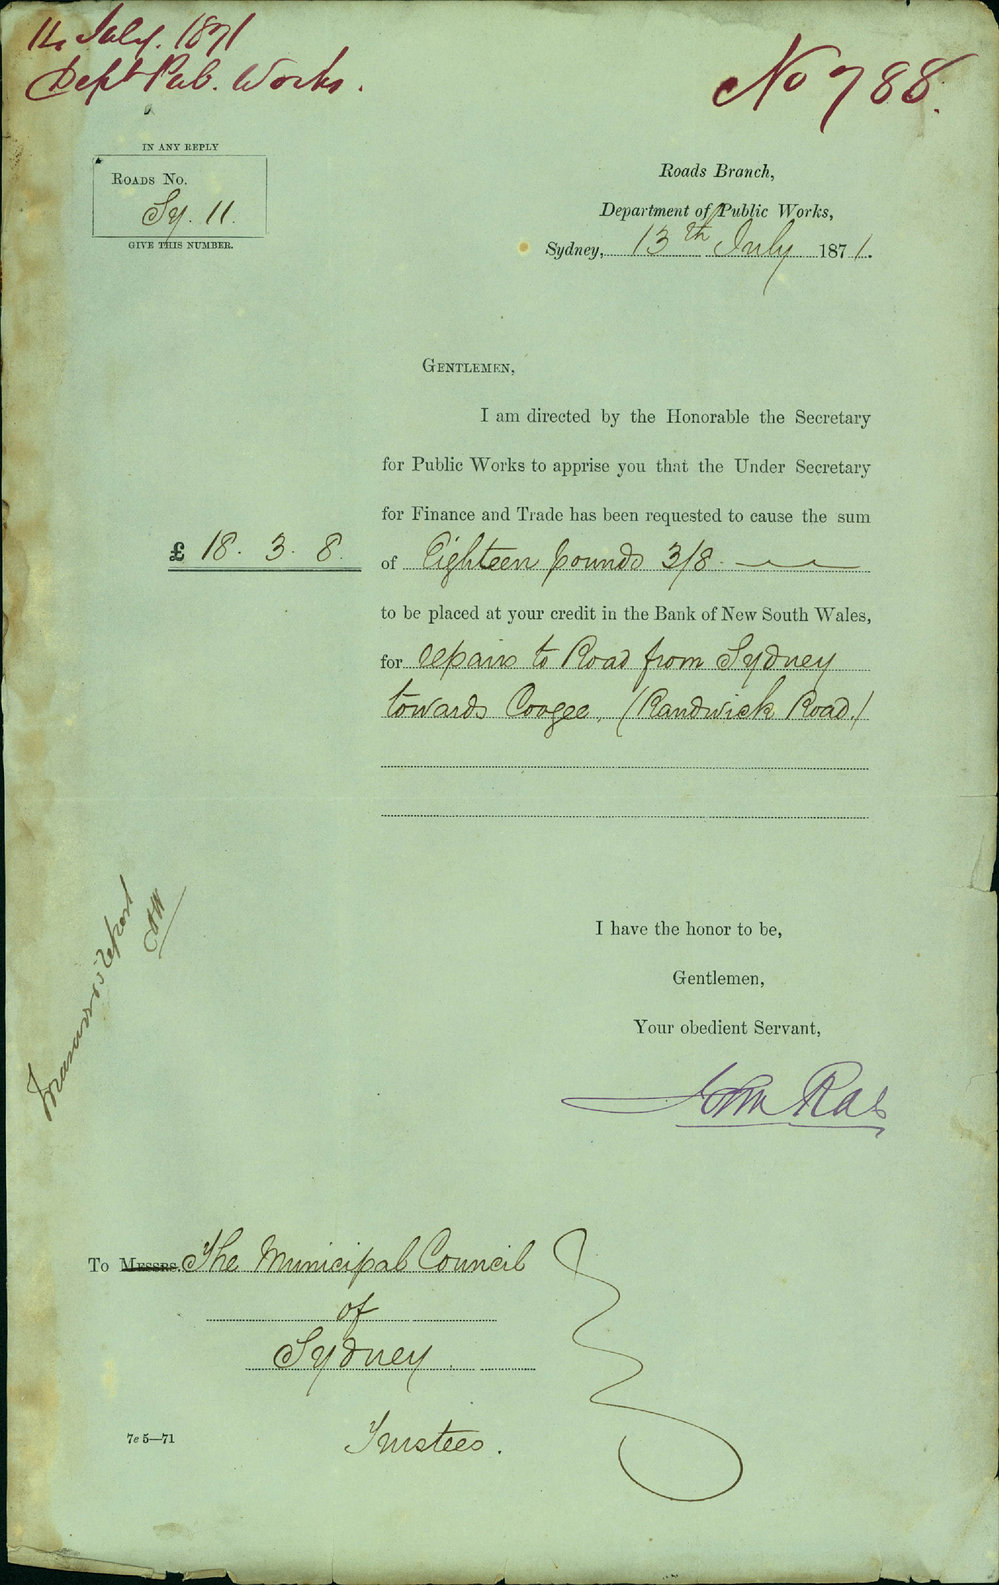 14 July. 1871
Dept Pub. Works.
No 788.
IN ANY REPLY
ROADS NO.
Sy. 11.
GIVE THIS NUMBER.
Roads Branch,
Department of Public Works,
Sydney, 13th July 1871.
GENTLEMEN,
I am directed by the Honorable the Secretary
for Public Works to apprise you that the Under Secretary
for Finance and Trade has been requested to cause the sum
£ 18. 3. 8. of Eighteen pounds 3/8.
to be placed at your credit in the Bank of New South Wales,
for repairs to Road from Sydney
towards Coogee, (Randwick Road.)
I have the honor to be,
Gentlemen,
Your obedient Servant,
John Rae
To MESSRS. The Municipal Council
of
Sydney.
Trustees.
7e 5—71